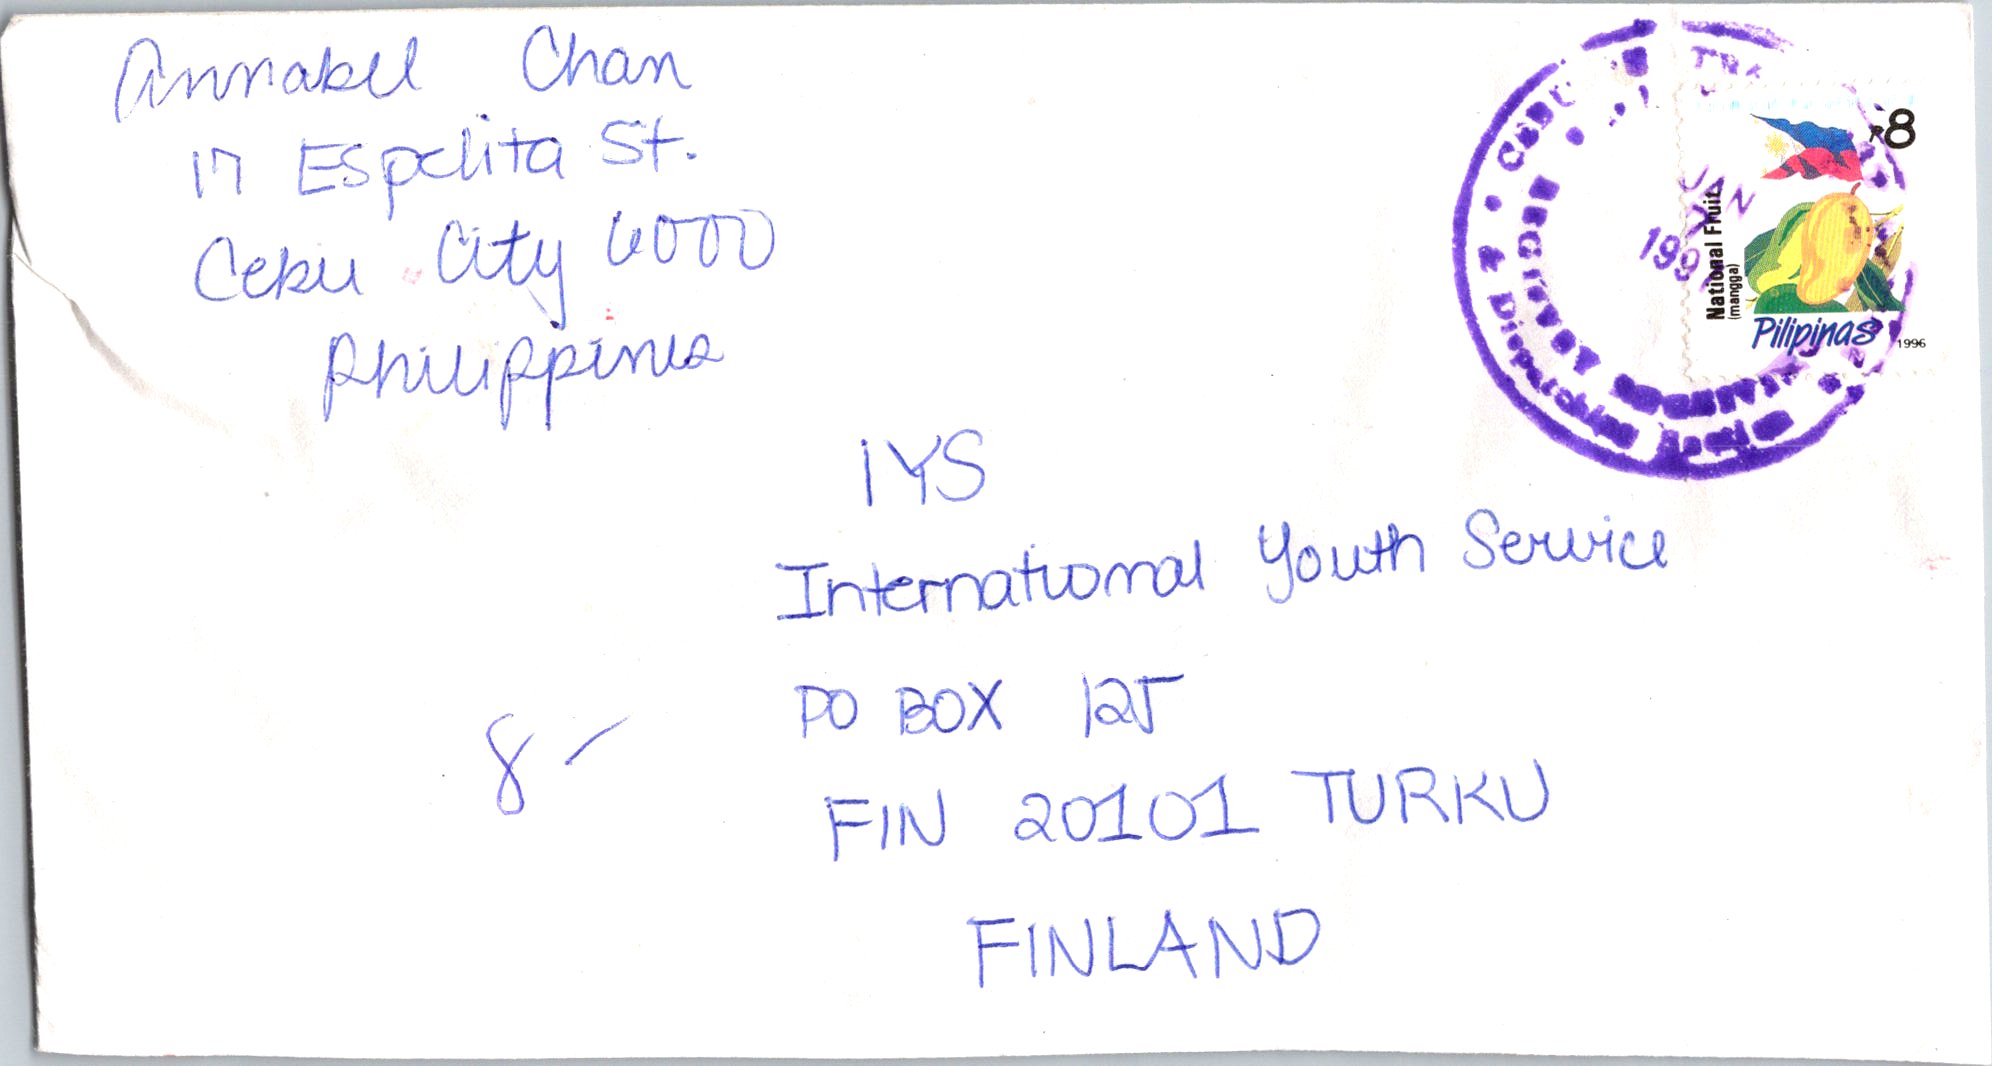 Annabel Chan
17 Espelita St.
Cebu City 6000
Philippines
₱8
National Fruit
(mangga)
Pilipinas
1996
JAN
199
Dispatching
IYS
International Youth Service
PO BOX 125
FIN 20101 TURKU
FINLAND
8-